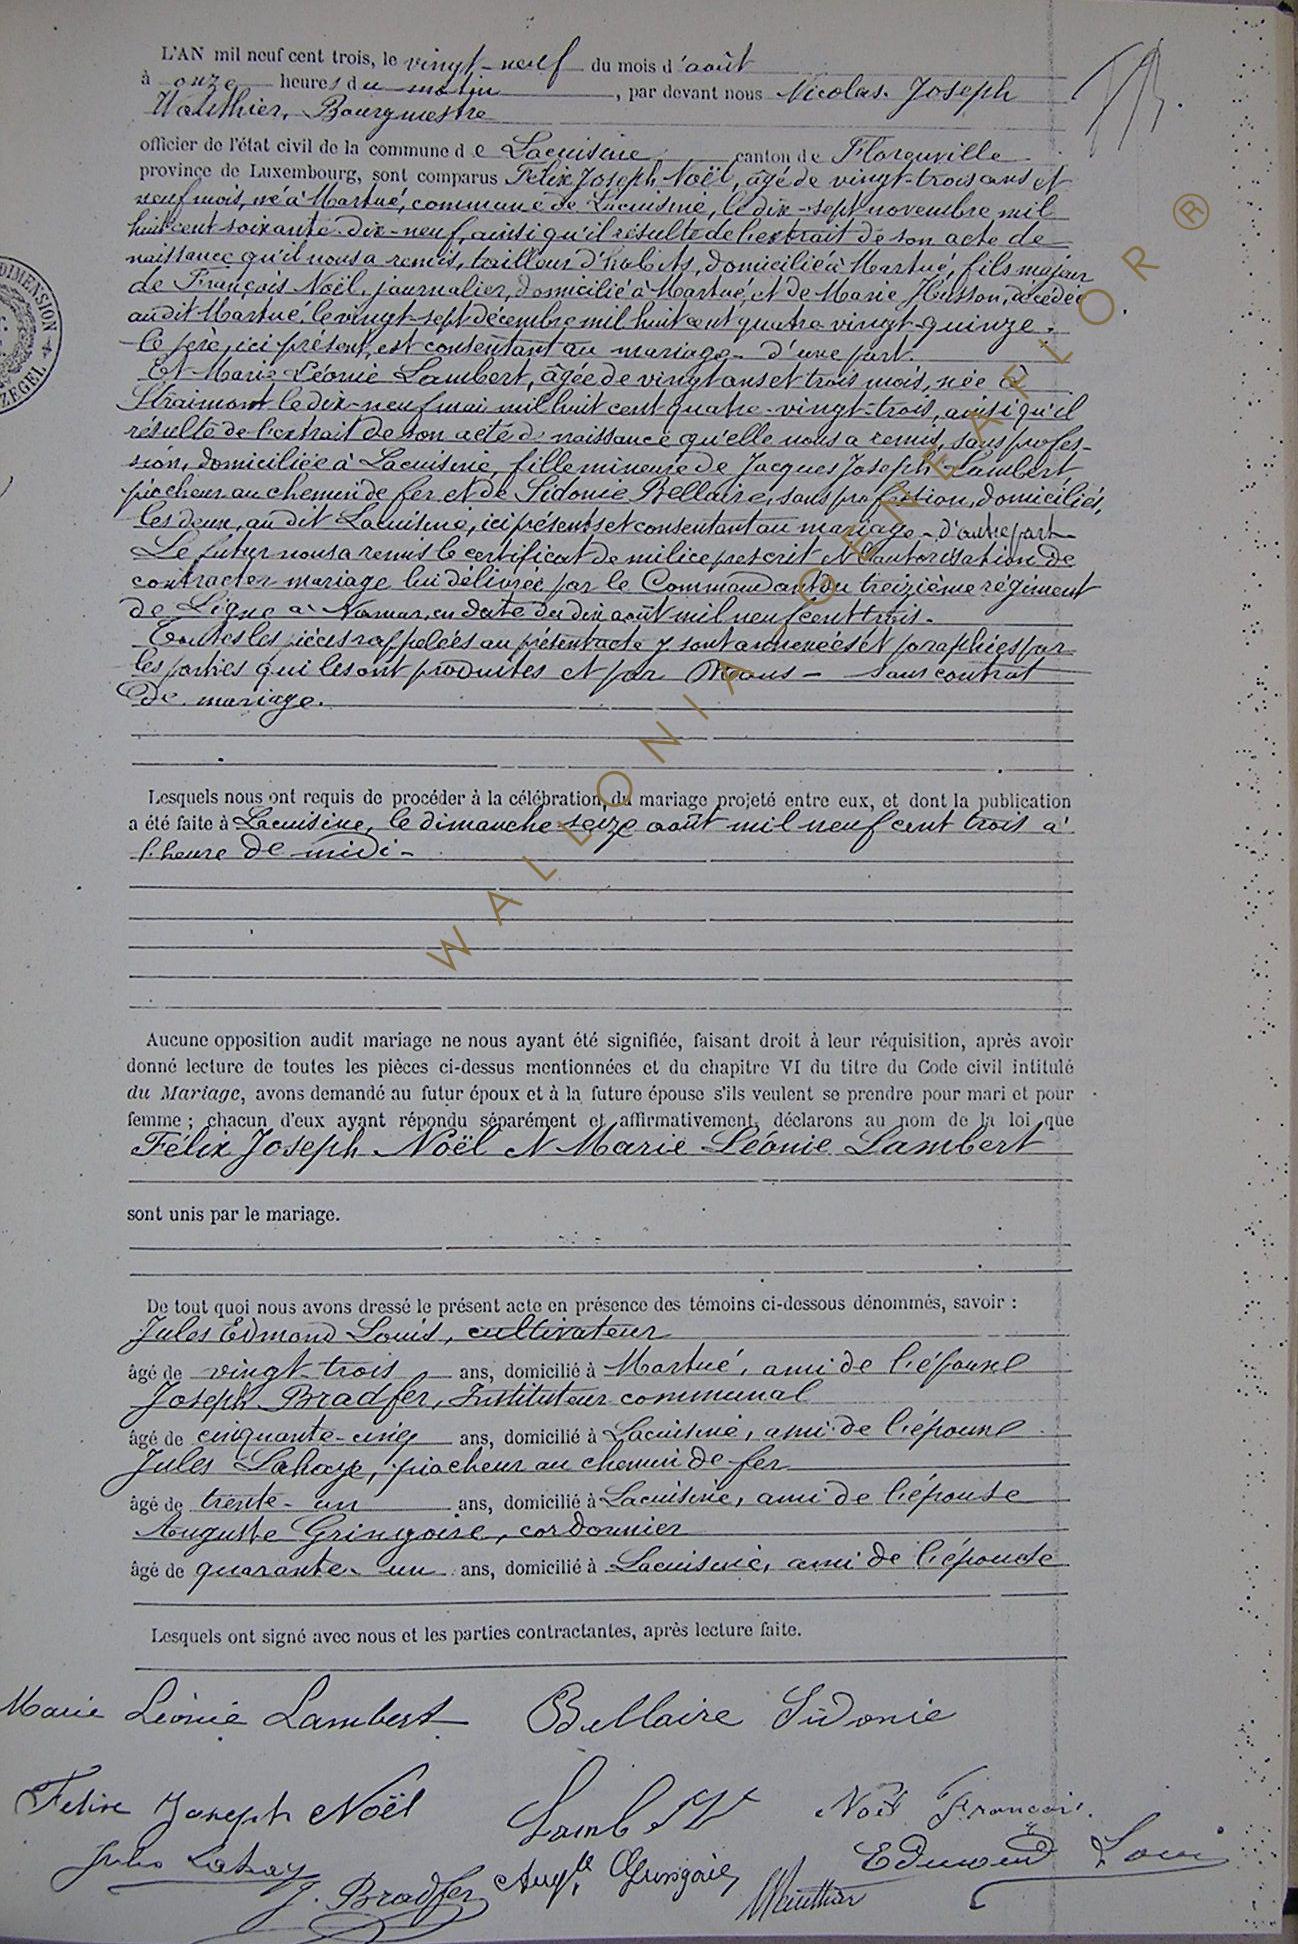 L'AN mil neuf cent trois, le vingt-neuf du mois d'août
à onze heures du matin, par devant nous Nicolas Joseph
Wauthier, Bourgmestre
officier de l'état civil de la commune de Lacuisine canton de Florenville
province de Luxembourg, sont comparus Félix Joseph Noël, âgé de vingt-trois ans et
neuf mois, né à Martué, commune de Lacuisine, le dix-sept novembre mil
huit cent soixante-dix-neuf, ainsi qu'il résulte de l'extrait de son acte de
naissance qu'il nous a remis, tailleur d'habits, domicilié à Martué, fils majeur
de François Noël, journalier, domicilié à Martué, et de Marie Husson, décédée
au dit Martué, le vingt-sept décembre mil huit cent quatre-vingt-quinze.
le père, ici présent, est consentant au mariage - d'une part.
Et Marie Léonie Lambert, âgée de vingt ans et trois mois, née à
Straimont le dix-neuf mai mil huit cent quatre-vingt-trois, ainsi qu'il
résulte de l'extrait de son acte de naissance qu'elle nous a remis, sans profes-
sion, domiciliée à Lacuisine, fille mineure de Jacques Joseph Lambert
piocheur au chemin de fer et de Sidonie Bellaire, sans profession, domiciliés,
les deux, au dit Lacuisine, ici présents et consentant au mariage - d'autre part
Le futur nous a remis le certificat de milice prescrit et l'autorisation de
contracter mariage lui délivrée par le Commandant du treizième régiment
de Ligne à Namur, en date du dix août mil neuf cent trois.
Toutes les pièces rappelées au présent acte y sont annexées et paraphées par
les parties qui les ont produites et par Nous - sans contrat
de mariage.
Lesquels nous ont requis de procéder à la célébration du mariage projeté entre eux, et dont la publication
a été faite à Lacuisine, le dimanche seize août mil neuf cent trois à
l'heure de midi -
Aucune opposition audit mariage ne nous ayant été signifiée, faisant droit à leur réquisition, après avoir
donné lecture de toutes les pièces ci-dessus mentionnées et du chapitre VI du titre du Code civil intitulé
du Mariage, avons demandé au futur époux et à la future épouse s'ils veulent se prendre pour mari et pour
femme ; chacun d'eux ayant répondu séparément et affirmativement, déclarons au nom de la loi que
Félix Joseph Noël et Marie Léonie Lambert
sont unis par le mariage.
De tout quoi nous avons dressé le présent acte en présence des témoins ci-dessous dénommés, savoir :
Jules Edmond Louis, cultivateur
âgé de vingt-trois ans, domicilié à Martué, ami de l'épouse
Joseph Bradfer, Instituteur communal
âgé de cinquante-cinq ans, domicilié à Lacuisine, ami de l'épouse
Jules Lahaye, piocheur au chemin de fer
âgé de trente-un ans, domicilié à Lacuisine, ami de l'épouse
Auguste Gringoire, cordonnier
âgé de quarante-un ans, domicilié à Lacuisine, ami de l'épouse
Lesquels ont signé avec nous et les parties contractantes, après lecture faite.
Marie Léonie Lambert Bellaire Sidonie
Félix Joseph Noël Lambert Noël François
Jules Lahaye J. Bradfer Augte Gringoire Wauthier Edmond Louis
DIMENSION
ZEGEL
WALLONIA-OENEAFLOR ®